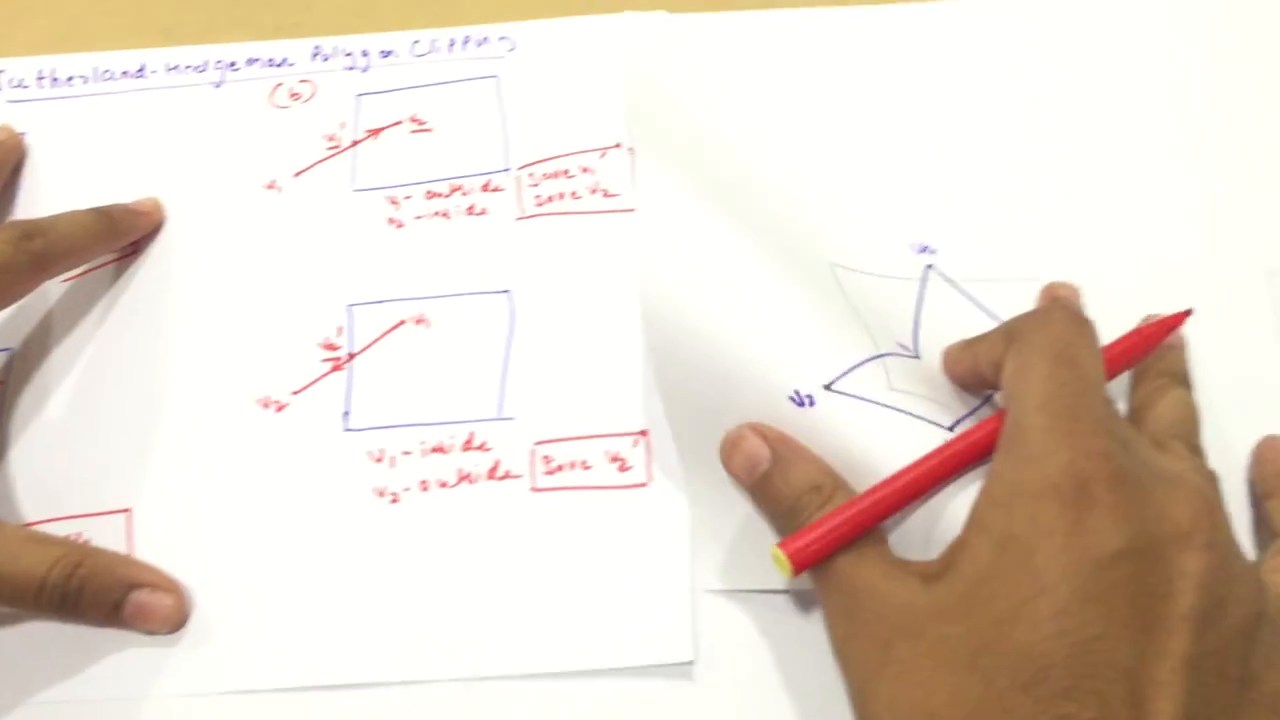 Sutherland-Hodgeman Polygon Clipping
(b)
v1' v2
v1
v1 - outside
v2 - inside
Save v1'
Save v2
v1
v2'
v2
v1 - inside
v2 - outside
Save v2'
v1
v3